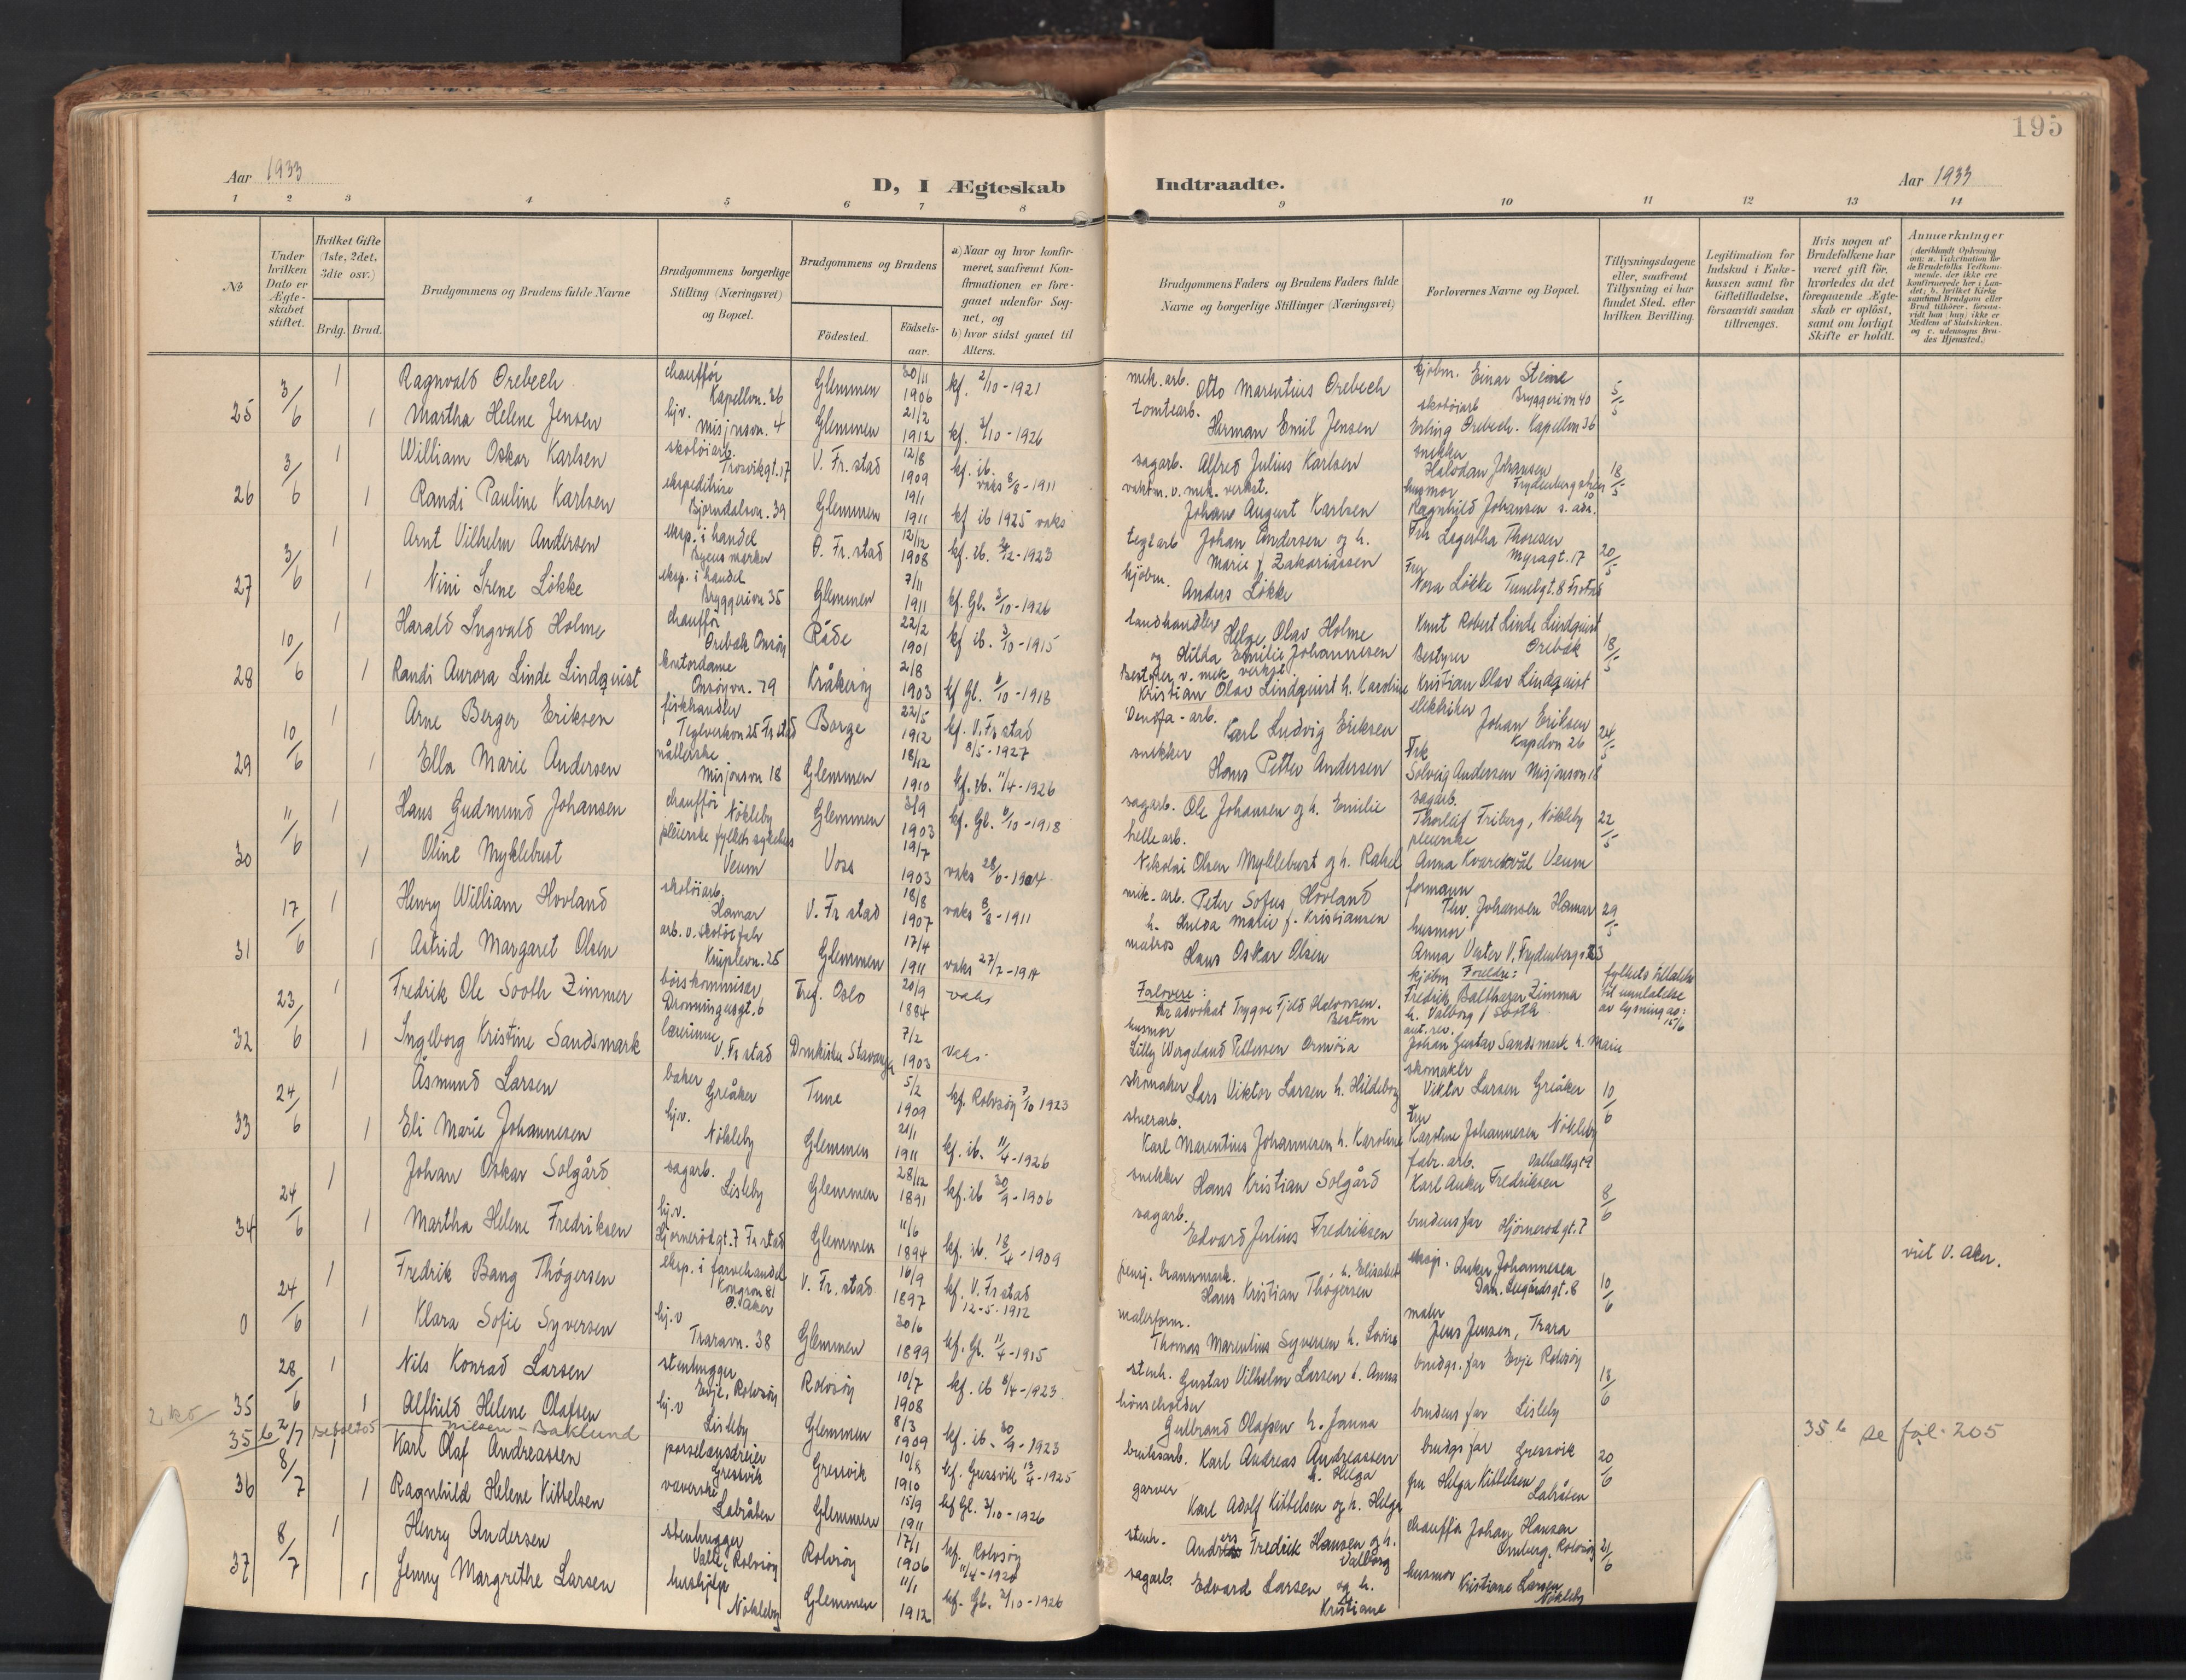 195
Aar 1933
D, I Ægteskab Indtraadte.
Aar 1933
1 2 3 4 5 6 7 8 9 10 11 12 13 14
No
Under hvilken Dato er Ægteskabet stiftet.
Hvilket Gifte (1ste, 2det, 3die osv.)
Brdg. Brud.
Brudgommens og Brudens fulde Navne
Brudgommens borgerlige Stilling (Næringsvei) og Bopæl.
Brudgommens og Brudens
Födested.
Födselsaar.
a) Naar og hvor konfirmeret, saafremt Konfirmationen er foregaaet udenfor Sognet, og
b) hvor sidst gaaet til Alters.
Brudgommens Faders og Brudens Faders fulde Navne og borgerlige Stillinger (Næringsvei)
Forlovernes Navne og Bopæl.
Tillysningsdagene eller, saafremt Tillysning ei har fundet Sted, efter hvilken Bevilling.
Legitimation for Indskud i Enkekassen samt for Giftetilladelse, forsaavidt saadan tiltrænges.
Hvis nogen af Brudefolkene har været gift för, hvorledes da det foregaaende Ægteskab er oplöst, samt om lovligt Skifte er holdt.
Anmerkninger
25 3/6 1 Ragnvald Orebech chauffør Kapellvn. 36 Glemmen 30/11 1906 kf. 2/10-1921 mek. arb. Otto Marentius Orebech kjøbm. Einar Steine Bryggerivn 40 5/5
1 Martha Helene Jensen hjv. Misjonsvn. 4 Glemmen 21/2 1912 kf. 3/10-1926 tomtearb. Herman Emil Jensen skotøiarb Erling Orebech. Kapellvn 36
26 3/6 1 William Oskar Karlsen skotøiarb. Trosvikgt. 17 V. Fr. stad 12/8 1909 kf. ib. vaks 8/8-1911 sagarb. Alfred Julius Karlsen snekker Halvdan Johansen 18/5
1 Randi Pauline Karlsen ekspeditrise Bjørndalsvn. 39 Glemmen 19/1 1911 kf ib 1925 vaks vaktm. v. mek. verkst. Johan August Karlsen husmor Ragnhild Johansen s. adr.
27 3/6 1 Arnt Vilhelm Andersen eksp. i handel Ø. Fr. stad 12/12 1908 kf. ib. -1923 teglarb Johan Andersen og h. Marie f Zakariassen Frk Lagertha Thoresen Myragt. 17 20/5
1 Nini Irene Løkke eksp. i handel Bryggerivn 35 Glemmen 7/11 1911 kf. Gl. 3/10-1926 kjøbm. Anders Løkke Fru Nora Løkke Tunebgt. 8 Frstad
28 10/6 1 Harald Ingvald Holme chauffør Orebak Onsøy Råde 22/2 1901 kf ib. 3/10-1915 landhandler Helge Olav Holme og Hilda Emilie Johannesen Knut Robert Linde Lindquist Bestyrer Orebak 18/5
1 Randi Aurora Linde Lindquist kontordame Onsøyvn. 79 Kråkerøy 2/8 1903 kf Gl. 6/10-1918 Bestyrer v. mek. verkst. Kristian Olav Lindquist h. Karoline Kristian Olav Lindquist
29 10/6 1 Arne Berger Eriksen fiskhandler Teglverksvn 25 Frstad Borge 22/5 1912 kf. V. Fr stad 8/5-1927 Denofa-arb. Karl Ludvig Eriksen elektriker Johan Eriksen Kapelvn 26 24/5
1 Ella Marie Andersen nållerske Misjonsvn 18 Glemmen 18/12 1910 kf. ib. 11/4-1926 snekker Hans Petter Andersen Frk Solveig Andersen Misjonsvn 18
30 11/6 1 Hans Gudmund Johansen chauffør Nøkleby Glemmen 3/9 1903 kf. Gl. 6/10-1918 sagarb. Ole Johansen og h. Emilie sagarb. Thorleif Friberg, Nøkleby 22/5
1 Oline Myklebust pleierske fylkets sykehus Veum Voss 19/7 1903 vaks 28/6-1904 hellearb. Nikolai Olsen Myklebust og h. Rakel pleierske Anna Kvarekvål Veum
31 17/6 1 Henry William Hovland skotøiarb. Hamar V. Fr stad 18/8 1907 vaks 8/8-1911 mek. arb. Peter Sofus Hovland h. Hulda Marie f. Kristiansen formann Thv. Johansen Hamar 29/5
1 Astrid Margaret Olsen arb. v. skotøifabr Kniplevn. 25 Glemmen 17/4 1911 vaks 27/7-1914 matros Hans Oskar Olsen husmor Anna Vester V. Frydenbergs 23
32 23/6 1 Fredrik Ole Sooth Zimmer børskommisær Dronningensgt. 6 Tref. Oslo 20/9 1884 vaks Forlovere: Hr advokat Trygve Fjeld Halvorsen. Bestem kjøbm Foreldre: Fredrik Balthazar Zimmer h. Valborg f Sooth fylkets tillatelse til unnlatelse av lysning av: 15/6
1 Ingeborg Kristine Sandsmark lærerinne V. Fr stad Domkirken Stavanger 7/2 1903 vaks husmor Lilly Wergeland Pettersen Ormøia aut. rev. Johan Gustav Sandsmark h. Marie
33 24/6 1 Åsmund Larsen baker Greåker Tune 5/2 1909 kf. Rolvsøy 7/10 1923 skomaker Lars Viktor Larsen h. Hildeborg skomaker Viktor Larsen Greåker 10/6
1 Eli Marie Johannesen hjv. Nøkleby Glemmen 21/1 1911 kf. ib. 11/4-1926 stuerarb. Karl Marentius Johannesen h. Karoline Fru Karoline Johannesen Nøkleby
34 24/6 1 Johan Oskar Solgård sagarb. Lisleby Glemmen 28/12 1891 kf. ib 30/9-1906 snekker Hans Kristian Solgård fabr. arb. Valhallsgt 9 Karl Anker Fredriksen 8/6
1 Martha Helene Fredriksen hj.v. Hjørnerødgt. 7 Frstad Glemmen 11/6 1894 kf. ib. 18/4-1909 sagarb. Edvard Julius Fredriksen brudens far Hjørnerødgt. 7
0 24/6 1 Fredrik Bang Thøgersen eksp. i farvehandel Kongsvn 81 Ø. Aker V. Fr. stad 16/9 1897 kf. V. Fr stad 12-5-1912 pensj. brannmark. Hans Kristian Thøgersen h. Elisabet eksp. Anker Johannesen Dam. Leegårdsgt. 8 10/6 viet V. Aker.
1 Klara Sofie Syversen hj.v Traravn. 38 Glemmen 30/6 1899 kf. Gl. 11/4-1915 malerform. Thomas Marentius Syversen h. Lovise maler Jens Jensen, Trara
35 28/6 1 Nils Konrad Larsen stenhugger Evje, Rolvsøy Rolvsøy 10/7 1908 kf. ib 8/4-1923 stenh. Gustav Vilhelm Larsen h. Anna brudgs. far Evje Rolvsøy 13/6
1 Alfhild Helene Olafsen hj.v Lisleby Glemmen 8/3 1909 kf. ib. 30/9-1923 hønseholder Gulbrand Olafsen h. Janna brudens far Lisleby
35 b 2/7 Se fol 205 Nilsen - Baklund 35 b se fol. 205
36 8/7 1 Karl Olaf Andreassen porselensdreier Gressvik Gressvik 10/8 1910 kf. Gressvik 13/4-1925 bruksarb. Karl Andreas Andreassen h. Helga brudgs far Gressvik 20/6
1 Ragnhild Helene Kittelsen væverske Labråten Glemmen 15/9 1911 kf Gl. 3/10-1926 garver Karl Adolf Kittelsen og h. Helga fru Helga Kittelsen Labråten
37 8/7 1 Henry Andersen stenhugger Valle, Rolvsøy Rolvsøy 17/1 1906 kf. Rolvsøy 11/4-1920 stenh. Anders Fredrik Hansen og h. Valborg chauffør Johan Hansen Omberg, Rolvsøy 21/6
1 Jenny Margrethe Larsen hushjelp Nøkleby Glemmen 11/1 1912 kf. Gl. 3/10-1926 sagarb. Edvard Larsen og h. Kristiane husmor Kristiane Larsen Nøkleby